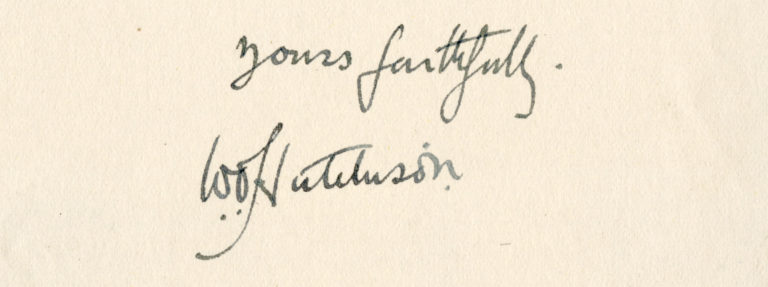 Yours faithfully.
W.O. Hutchison